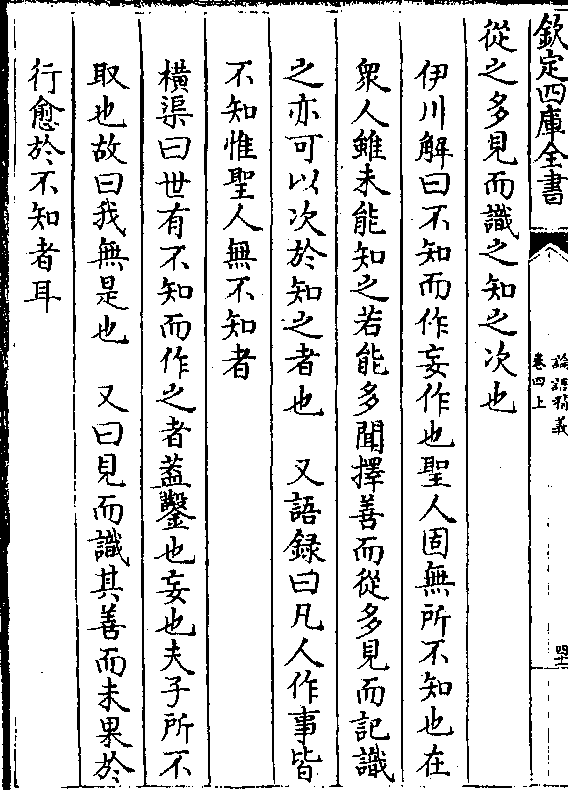 欽定四庫全書
論語精義
卷四上
從之多見而識之知之次也
伊川解曰不知而作妄作也聖人固無所不知也在
衆人雖未能知之若能多聞擇善而從多見而記識
之亦可以次於知之者也　又語録曰凡人作事皆
不知惟聖人無不知者
橫渠曰世有不知而作之者葢鑿也妄也夫子所不
取也故曰我無是也　又曰見而識其善而未果於
行愈於不知者耳